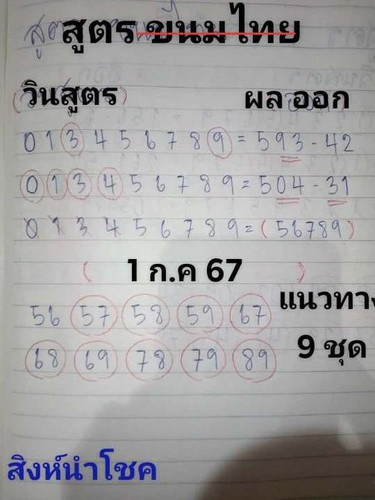 สูตร ขนมไทย
(วินสูตร) ผลออก
0 1 3 4 5 6 7 8 9 = 593 - 42
0 1 3 4 5 6 7 8 9 = 504 - 31
0 1 3 4 5 6 7 8 9 = (56789)
( 1 ก.ค 67 )
56 57 58 59 67 แนวทาง
68 69 78 79 89 9 ชุด
สิงห์นำโชค